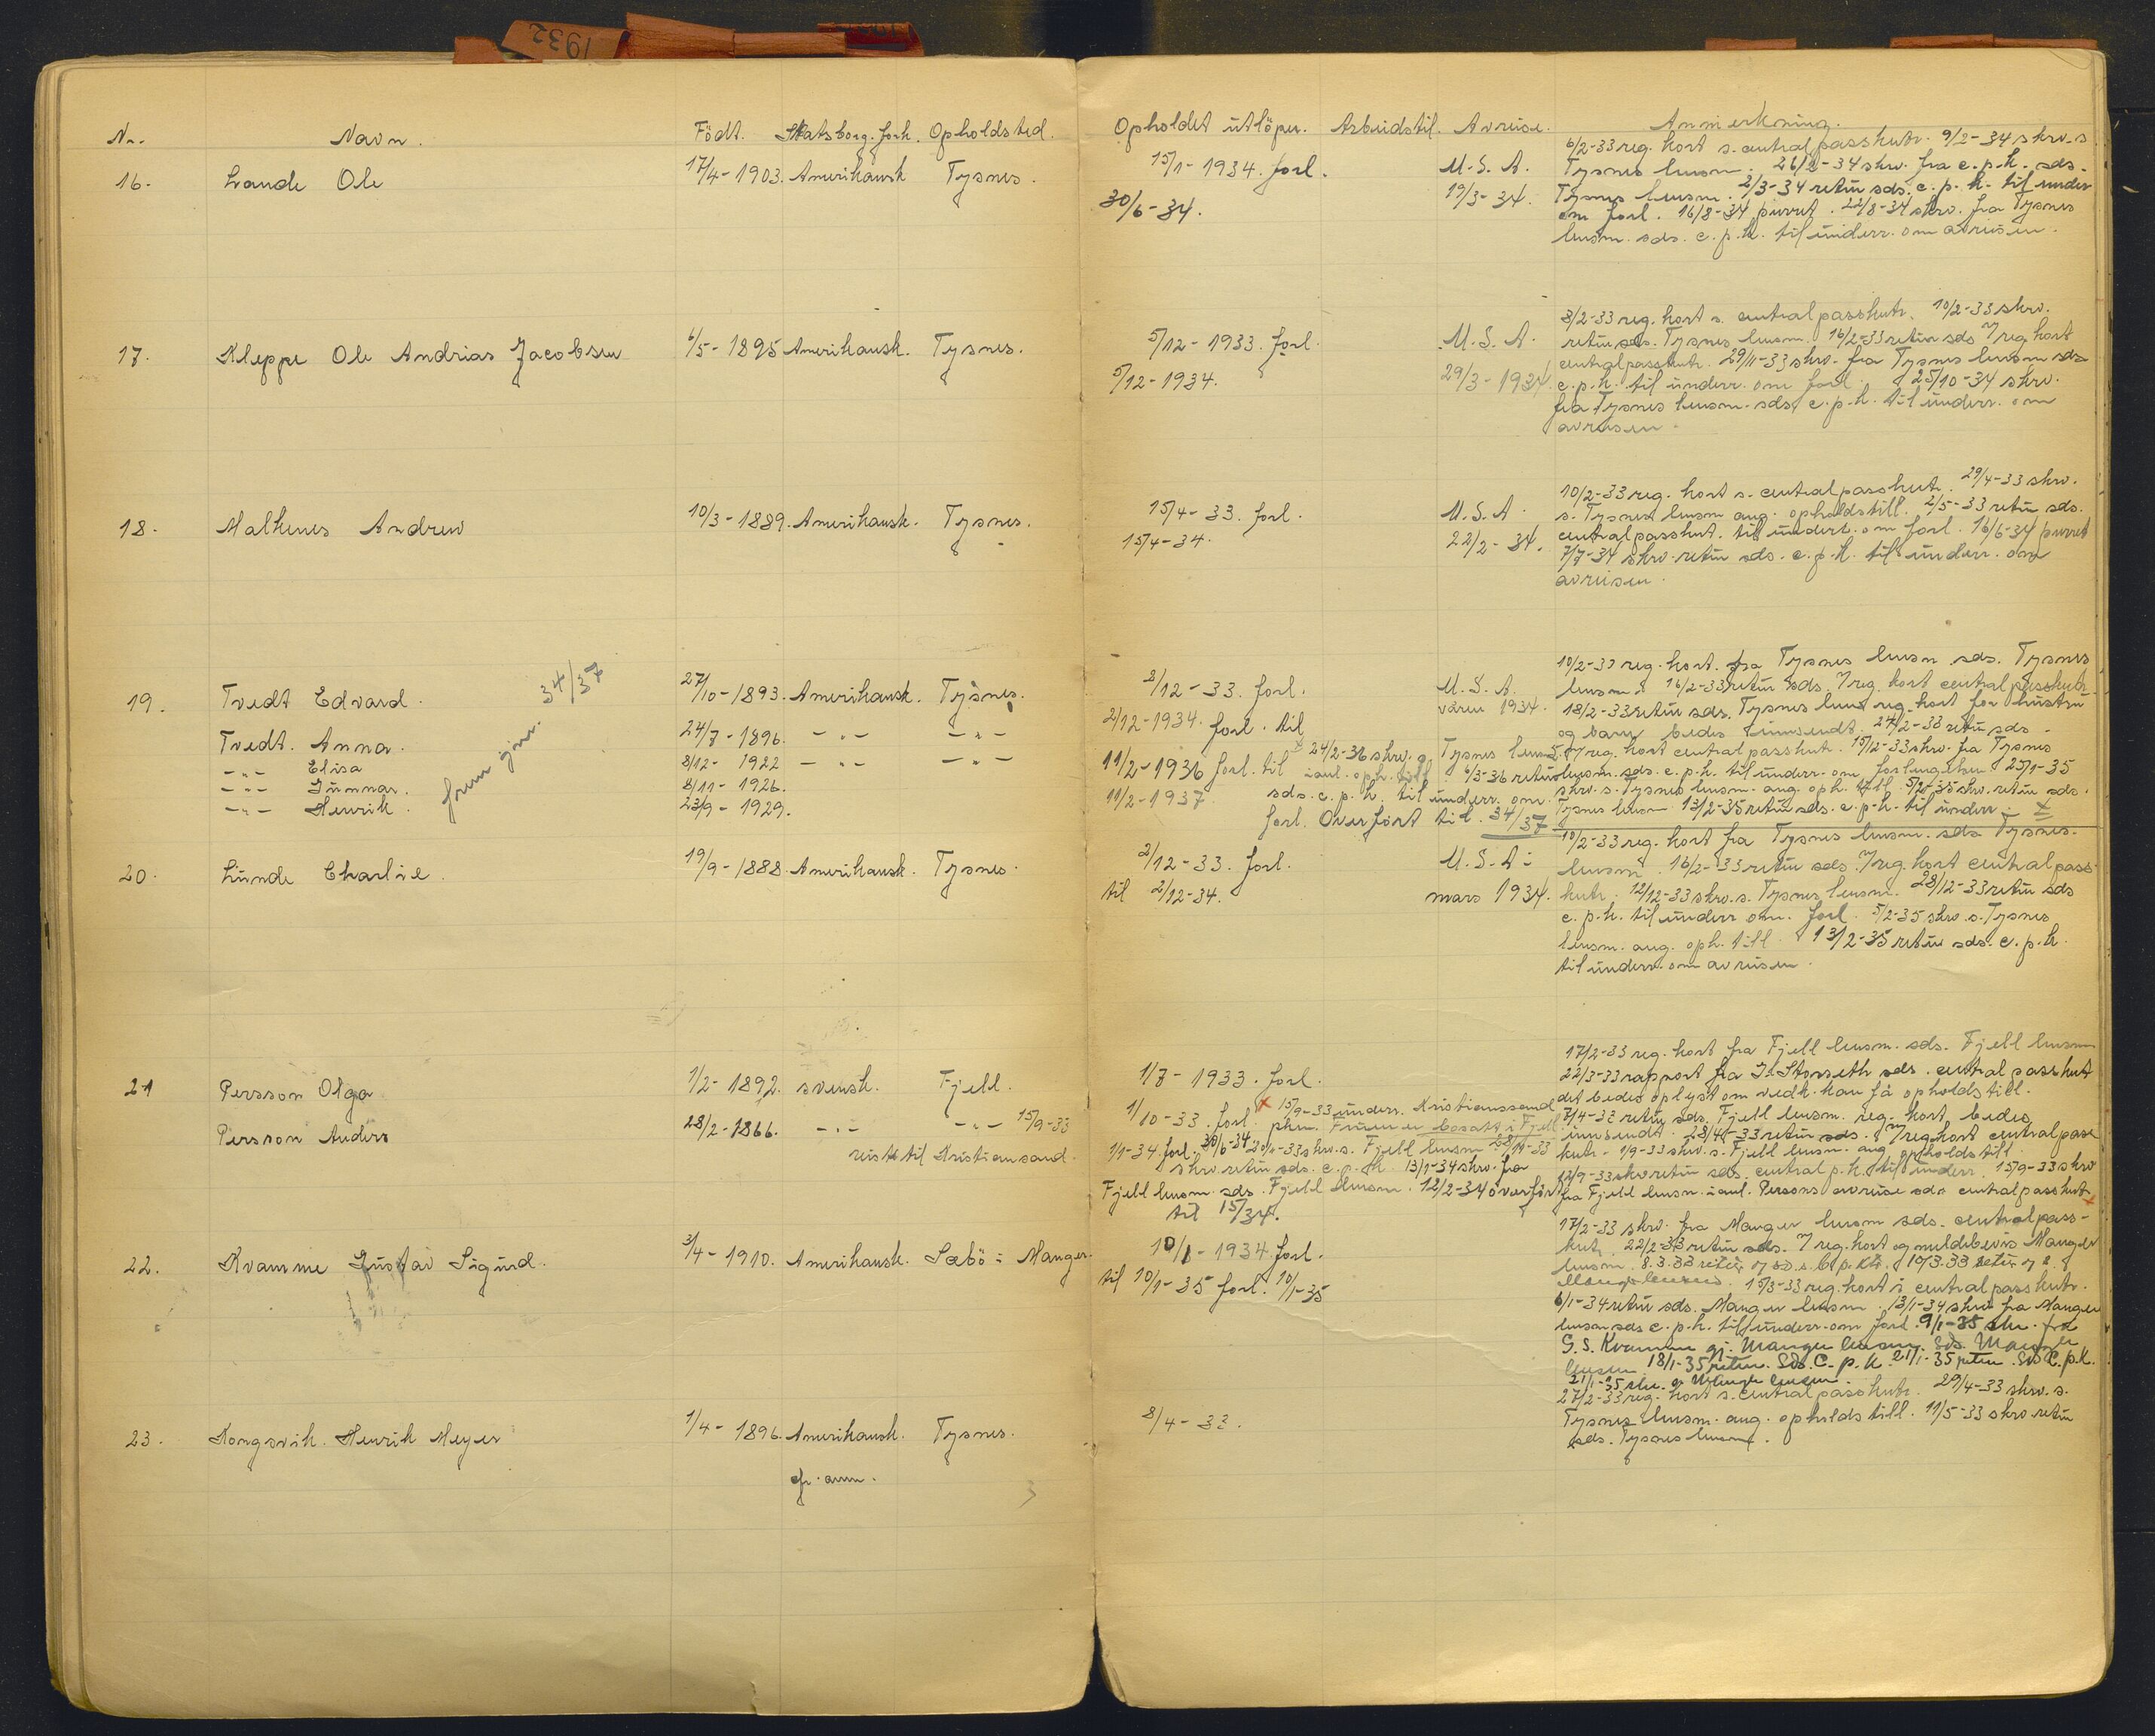 1932
Nr. Navn. Födt. Statsborg.forh. Opholdsted. Opholdet utlöper. Arbeidstil. Avreise. Anmerkning.
16. Lande Ole 17/4-1903. Amerikansk Tysnes. 15/1-1934. forl. U.S.A.
30/6-34. 19/3-34.
6/2-33 reg. kort s. centralpasskntr. 9/2-34 skrv. s
Tysnes lensm. 26/2-34 skrv. fra c.p.k. sds.
Tysnes lensm. 2/3-34 retur sds. c.p.k. til underr
om forl. 16/8-34 purret. 22/8-34 skrv. fra Tysnes
lensm. sds. c.p.k. til underr. om avreisen.
17. Kleppe Ole Andrias Jacobsen 6/5-1895 Amerikansk. Tysnes. 5/12-1933. forl. U.S.A.
5/12-1934. 29/3-1934.
8/2-33 reg. kort s. centralpasskntr. 10/2-33 skrv.
retur sds. Tysnes lensm. 16/2-33 retur sds 7 reg kort
centralpasskntr. 29/11-33 skrv. fra Tysnes lensm sds
c.p.k. til underr. om forl. 25/10-34 skrv.
fra Tysnes lensm. sds. c.p.k. til underr. om
avreisen.
18. Malkenes Andrew 10/3-1889. Amerikansk. Tysnes. 15/4-33. forl. U.S.A.
15/4-34. 22/2-34.
10/2-33 reg. kort s. centralpasskntr. 29/4-33 skrv.
s. Tysnes lensm ang. opholdstill. 2/5-33 retur sds.
centralpasskntr. til underr. om forl. 16/6-34 purret
7/7-34 skrv. retur sds. c.p.k. til underr. om
avreisen.
19. Tvedt Edvard. 27/10-1893. Amerikansk. Tysnes. 2/12-33. forl. U.S.A.
våren 1934.
Tvedt. Anna. 24/7-1896. -"- -"- 2/12-1934. forl. til
-"- Elisa 8/12-1922 -"- -"- 11/2-1936 forl. til
-"- Gunnar. 8/11-1926. 11/2-1937
-"- Henrik. 23/9-1929.
frem gjnr. 34/37
24/2-36 skrv. s. Tysnes lensm.
6/3-36 retur
sds. c.p.k. til underr. om
forl. Overført til 34/37
10/2-33 reg. kort. fra Tysnes lensm sds. Tysnes
lensm. 16/2-33 retur sds. 7 reg. kort centralpasskntr.
18/2-33 retur sds. Tysnes lens reg. kort for hustru
og barn bedes innsendt. 24/2-33 retur sds.
7 reg. kort centralpasskntr. 15/12-33 skrv. fra Tysnes
lensm. sds. c.p.k. til underr. om forlengelsen 25/1-35
skrv. s. Tysnes lensm. ang. oph. till. 5/2-35 skrv. retur sds.
Tysnes lensm. 13/2-35 retur sds. c.p.k. til underr.
20. Lunde Charlie. 19/9-1888. Amerikansk. Tysnes. 2/12-33. forl. U.S.A.
til 2/12-34. mars 1934.
10/2-33 reg. kort fra Tysnes lensm. sds Tysnes.
lensm. 16/2-33 retur sds. 7 reg. kort centralpass-
kntr. 12/12-33 skrv. s. Tysnes lensm. 28/12-33 retur sds
c.p.k. til underr om. forl. 5/2-35 skrv. s. Tysnes
lensm. ang. oph. till. 13/2-35 retur sds. c.p.k.
til underr. om avreisen.
21 Persson Olga 1/2-1892. svensk. Fjell. 1/7-1933. forl.
Persson Anders 28/2-1866. -"- -"- 15/9-33
reist til Kristiansand.
1/10-33. forl. x 15/9-33 underr. Kristianssand
pkm. Fruen er bosatt i Fjell.
1/1-34 forl. 30/6-34 20/11-33 skrv. s. Fjell lensm 28/11-33
skrv. retur sds. c.p.k. 13/1-34 skrv. fra
Fjell lensm. sds. Fjell lensm. 12/2-34 överfört
til 15/34.
17/2-33 reg. kort fra Fjell lensm. sds. Fjell lensm
22/3-33 rapport fra J. Storseth sds. central passknt
det bedes oplyst om vedk. kan få opholdstill.
7/4-33 retur sds. Fjell lensm. reg. kort bedes
innsendt. 28/4-33 retur sds. 7 reg. kort central pass
kntr. 1/9-33 skrv. s. Fjell lensm. ang opholdstill.
12/9-33 skrv retur sds. central p.k. til underr. 15/9-33 skrv
fra Fjell lensm. i anl. Persons avreise sds centralpasskntr. x
22. Kvamme Gustav Sigurd. 3/4-1910. Amerikansk. Sæbö i Manger. 10/1-1934. forl.
til 10/1-35 forl. 10/1-35
17/2-33 skrv. fra Manger lensm sds. centralpass-
kntr. 22/2-33 retur sds. 7 reg. kort og meldebevis Manger
lensm. 8.3.33 retur
15/3-33 reg. kort s centralpasskntr.
6/1-34 retur sds. Manger lensm. 13/1-34 skrv fra Manger
lensm sds c.p.k. til underr. om forl. 9/1-35 skr. fra
G.S. Kvamme gj. Manger lensm. Sds. Manger
lensm 18/1-35 retur. Sds. C.p.k. 21/1-35 retur. Sds C.p.k.
21/1-35 skr. s Manger lensm.
23. Kongsvik. Henrik Meyer 1/4-1896. Amerikansk. Tysnes. 8/4-33.
cfr. anm.
27/2-33 reg. kort s. centralpasskntr. 29/4-33 skrv. s.
Tysnes lensm. ang. opholdstill. 11/5-33 skrv retur
sds. Tysnes lensm.